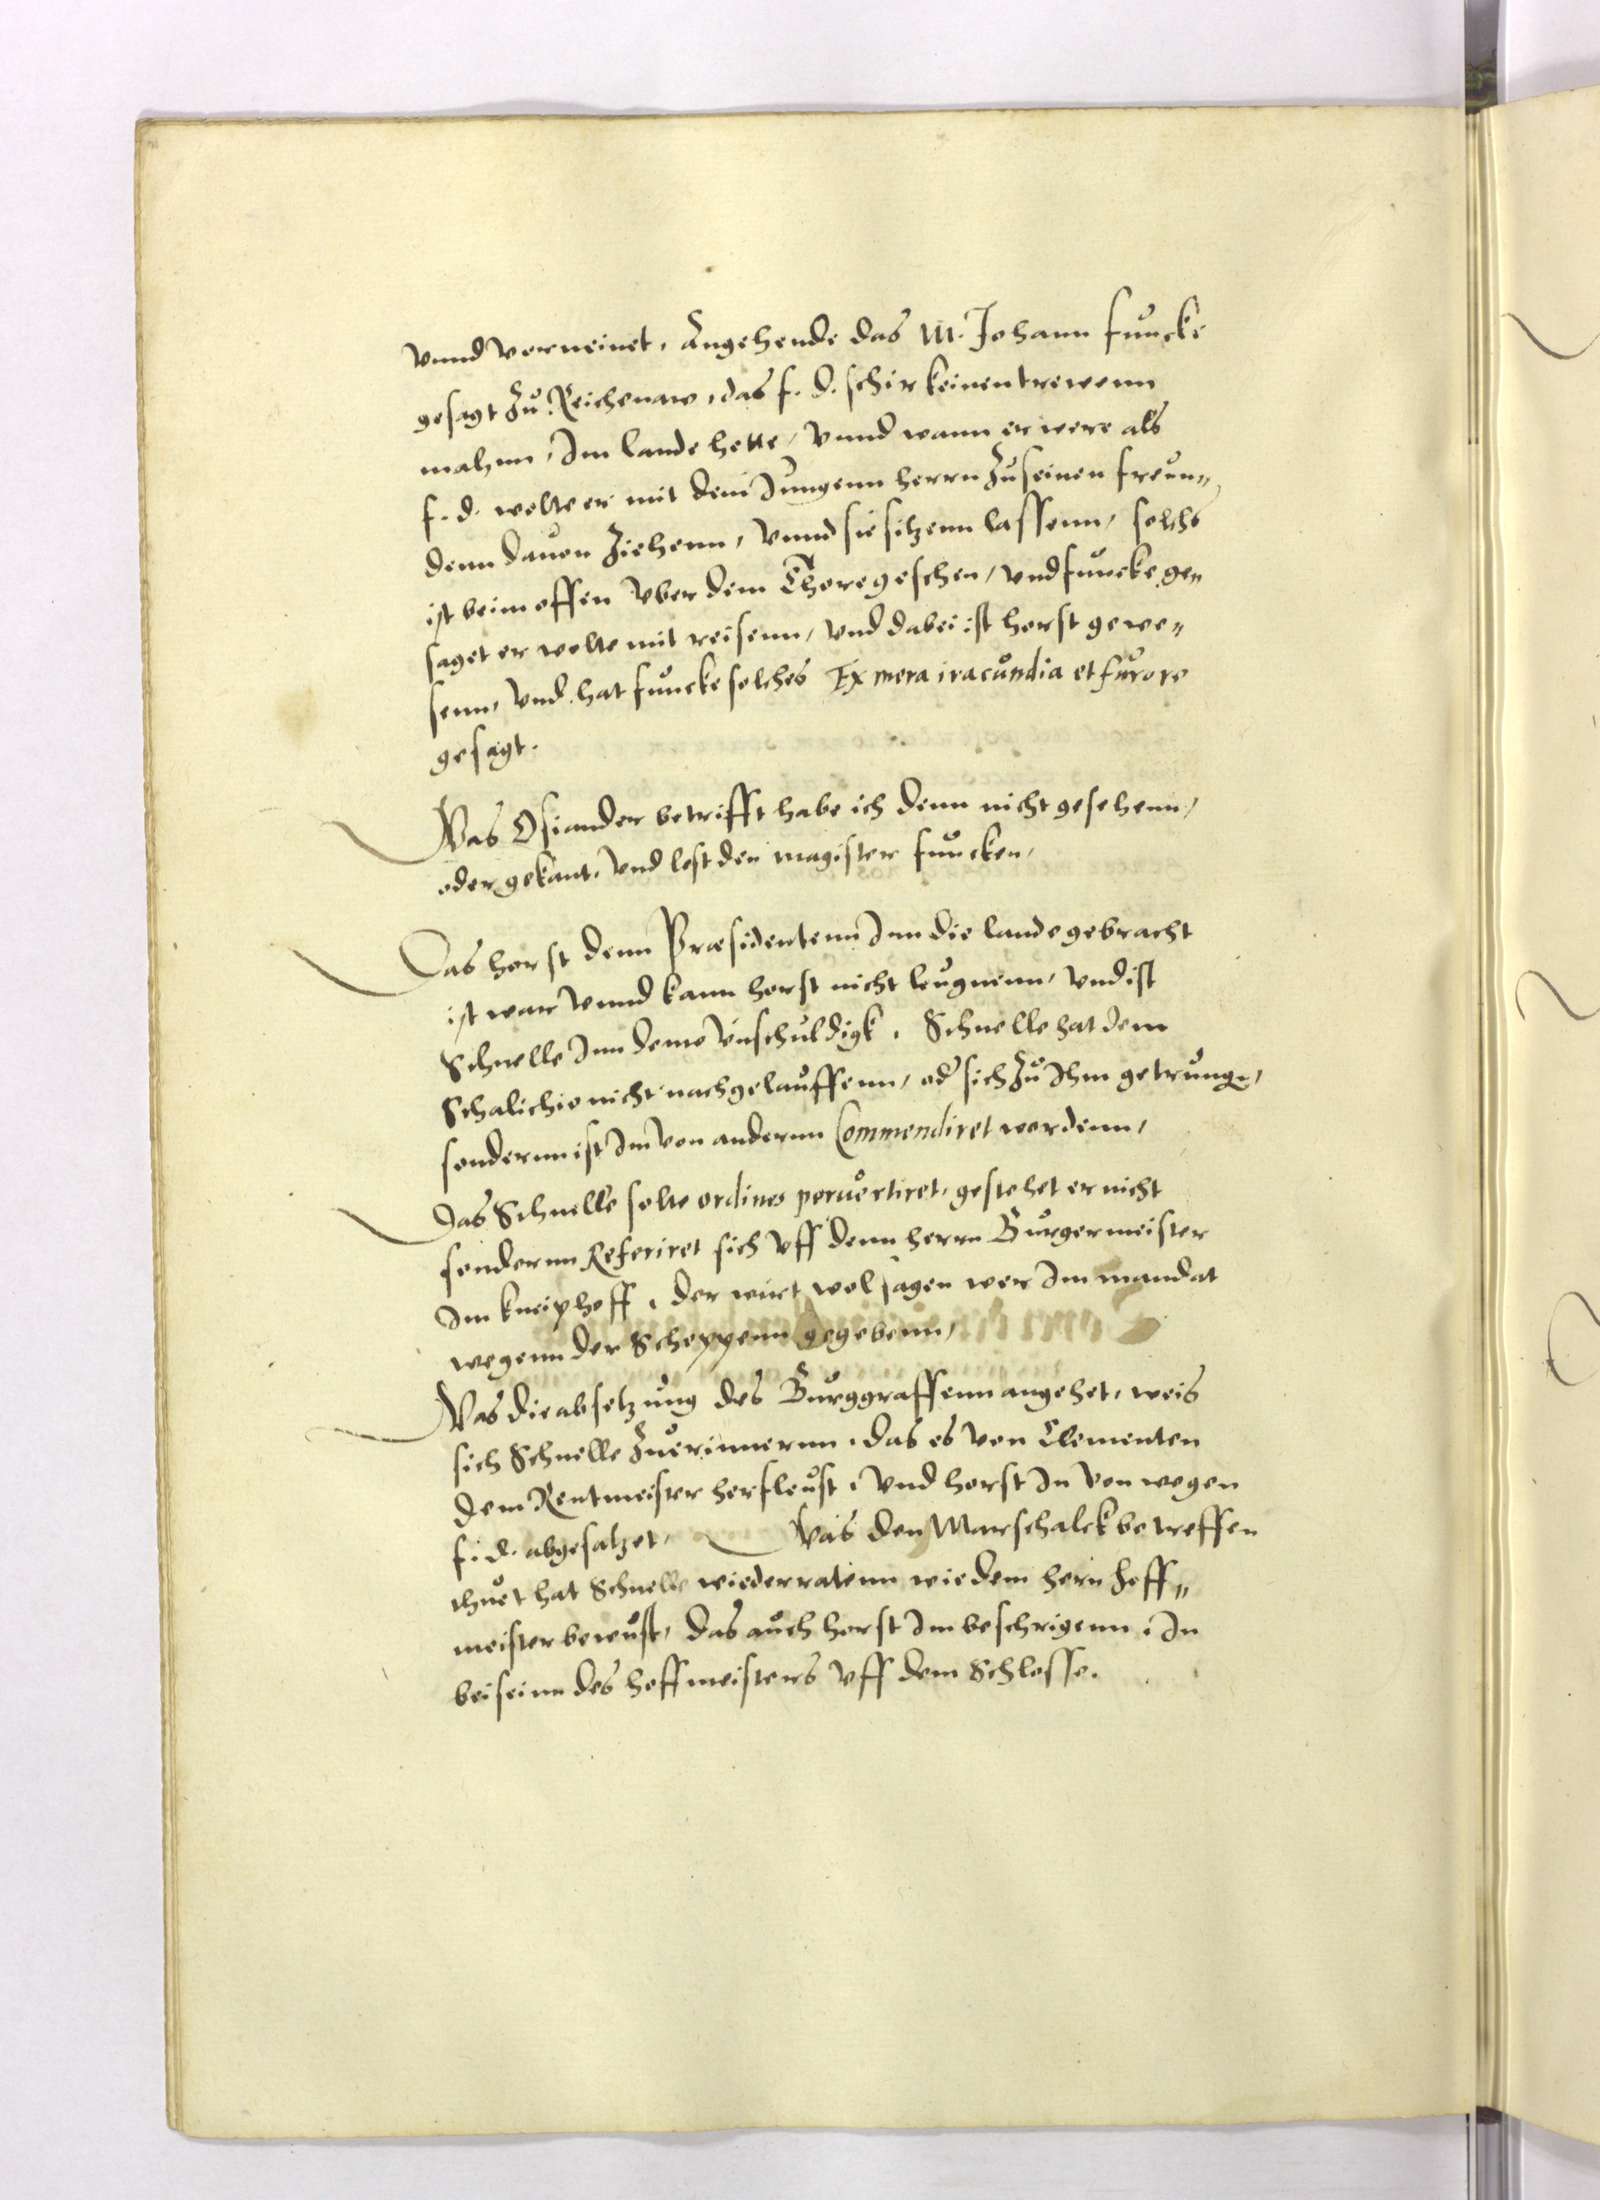 vnnd verneinet, Angehende das M. Johann Funcke
gesagt zu Reichenaw, das f. d. schir keinen trewenn
mahnn, Im lande hette, vnnd wann er were als
f. d. wolte er mit dem Jungenn herrn zu seinen freun„
denn dauon ziehenn, vnnd sie sitzenn lassenn, solchs
ist beim offen vber dem Thore geschen, vnd funcke ge„
saget er wolte mit reisenn, vnd dabei ist horst gewe„
senn, vnd hat funcke solches Ex mera iracundia et furore
gesagt.
Was Osiander betrifft habe ich denn nicht gesehenn,
oder gekant, vnd lest den magister funcken,
Das horst denn Præsidentenn Inn die lande gebracht
ist war vnnd kann horst nicht leugnenn, vnd ist
Schnelle Inn deme vnschuldigk, Schnelle hat dem
Schalichio nicht nachgelauffenn, od sich zu Ihm getrunge,
sondernn ist Im von andernn Commendiret wordenn,
Das Schnelle solte ordines peruertiret, gestehet er nicht
sondernn Referiret sich vff denn herrn Burgermeister
Im kneiphoff, der wirt wol sagen wer Im mandat
wegenn der Scheppenn gegebenn,
Was die absetzung des Burggraffenn angehet, weis
sich Schnelle zuerinnernn, das es von Clementen
dem Rentmeister herfleust, vnd horst In von wegen
f. d. abgesatzet, Was den Marschalck betreffen
thuet hat Schnelle wiederratenn wie dem hern hoff„
meister bewust, das auch horst Im beschrigenn, In
beiseinn des hoffmeisters vff dem Schlosse.